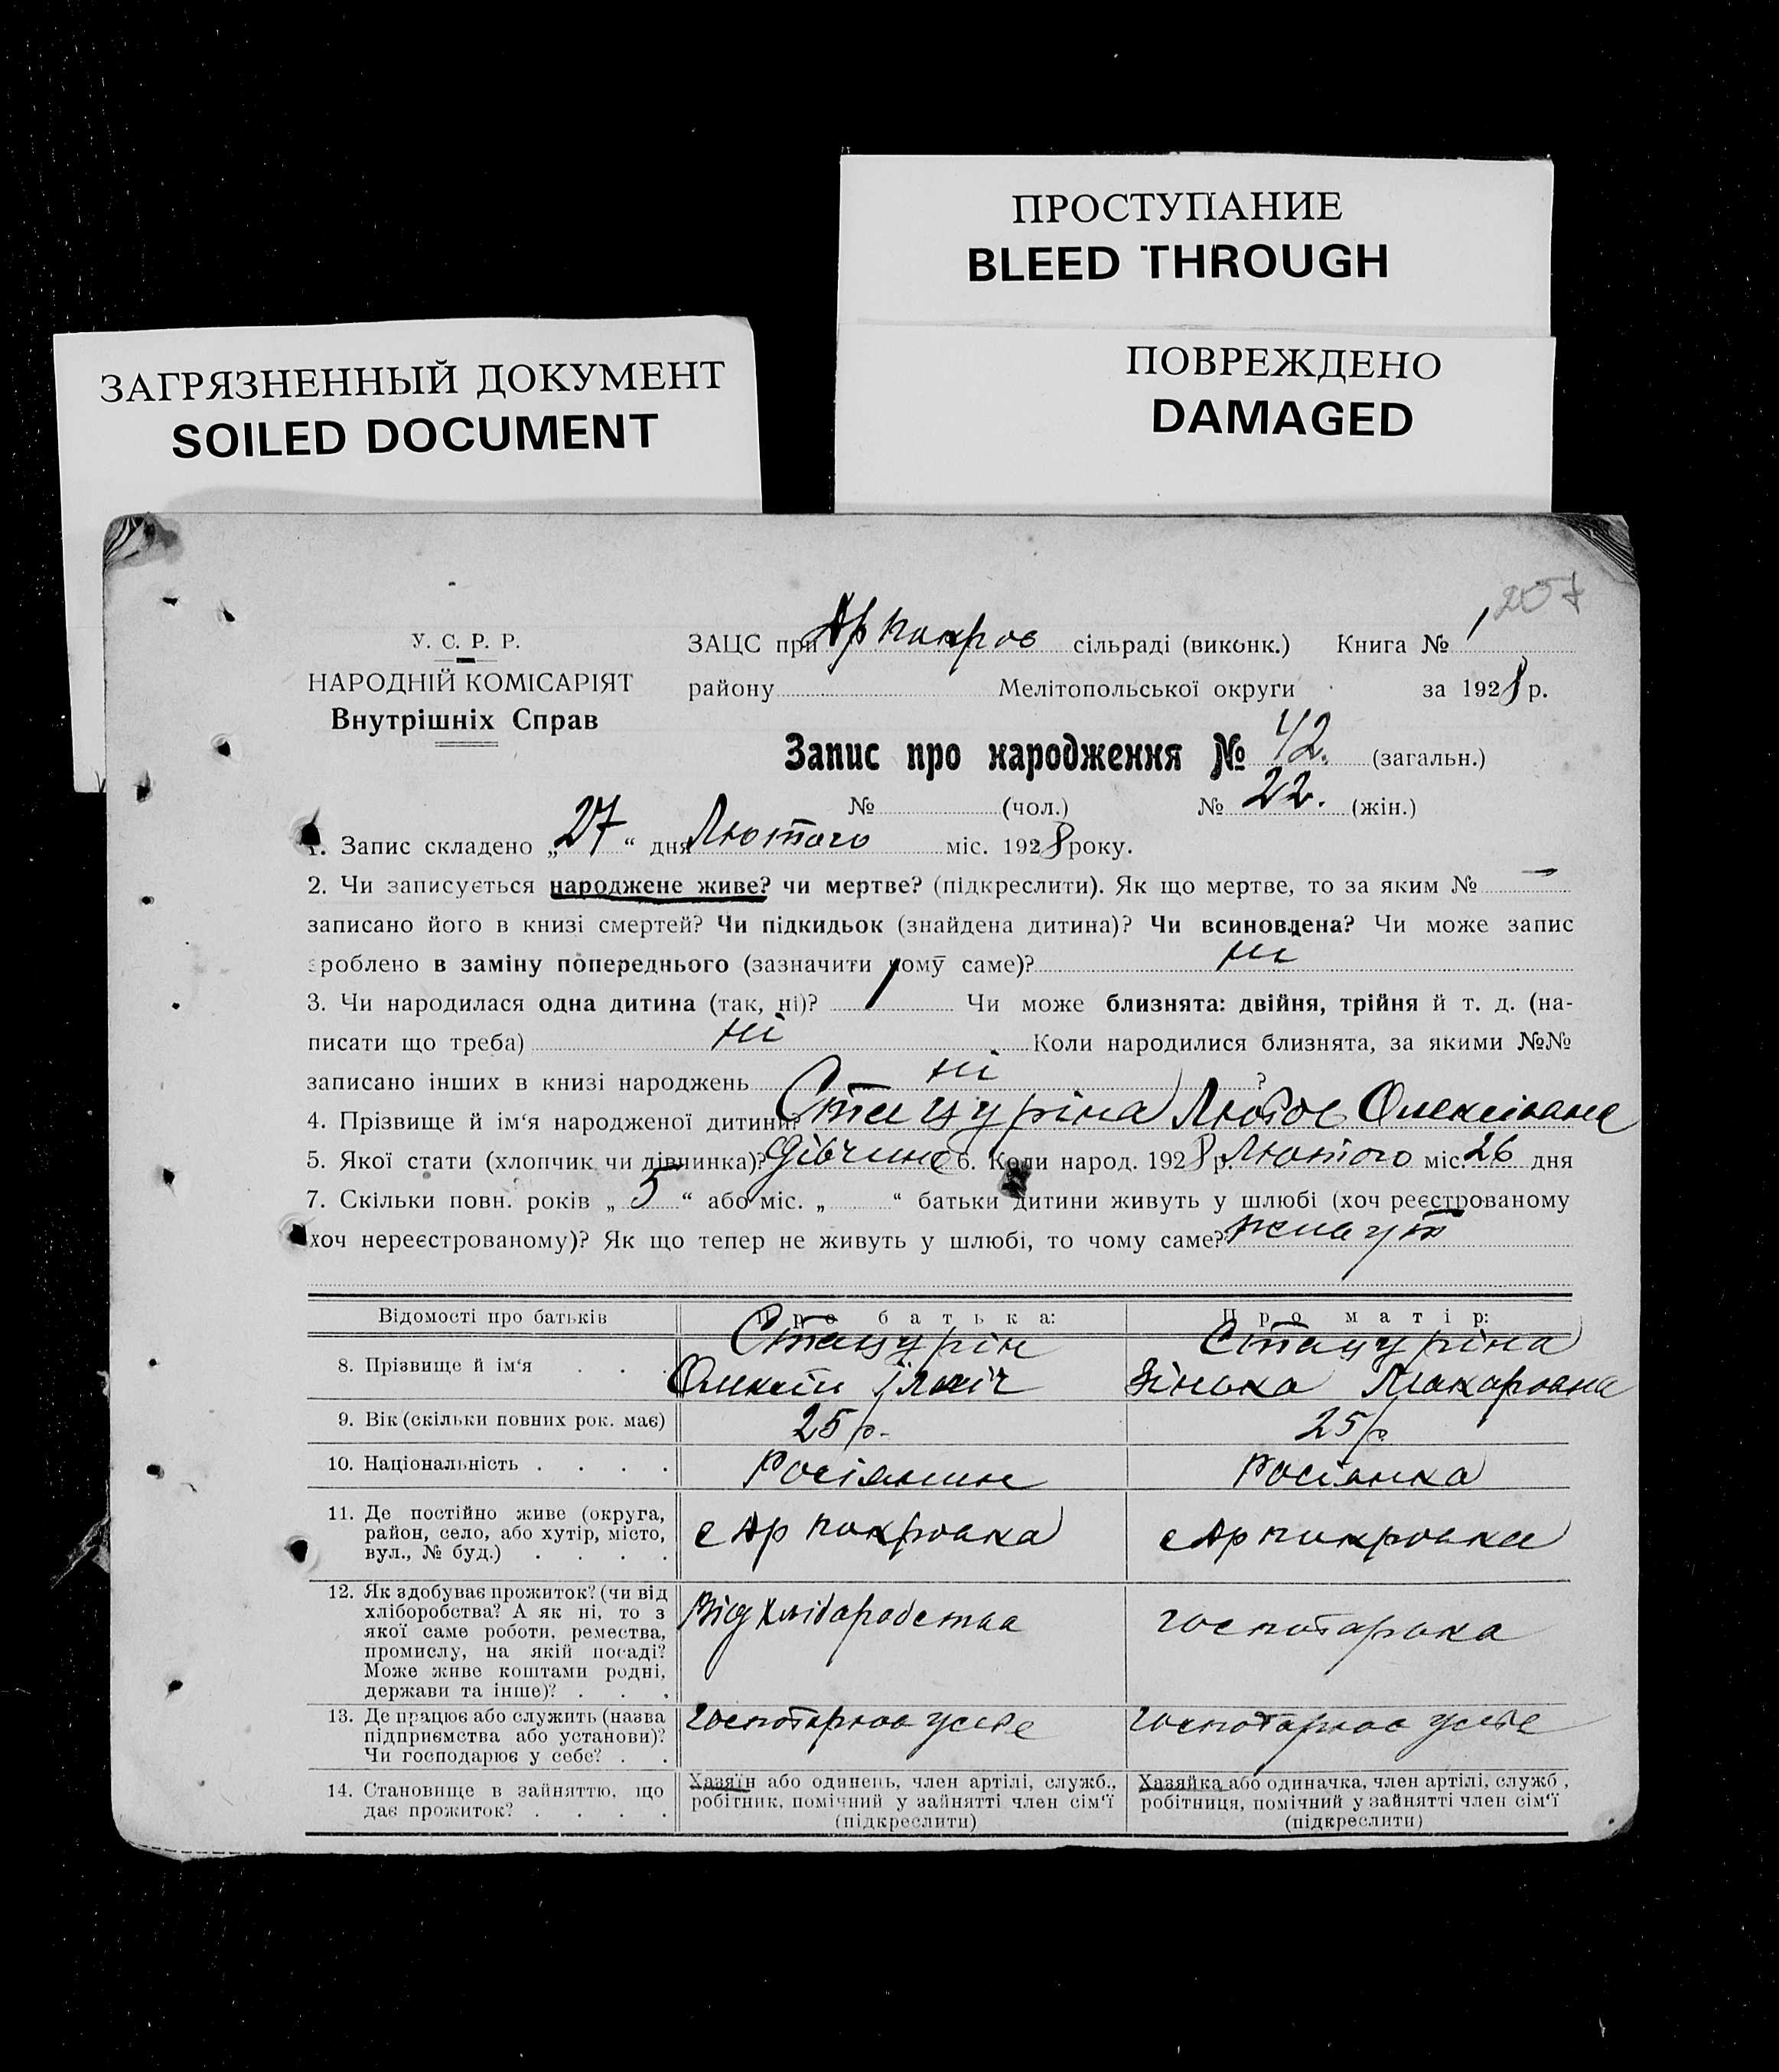 ПРОСТУПАНИЕ
BLEED THROUGH
ЗАГРЯЗНЕННЫЙ ДОКУМЕНТ
SOILED DOCUMENT
ПОВРЕЖДЕНО
DAMAGED
У. С. Р. Р.
НАРОДНІЙ КОМІСАРІЯТ
Внутрішніх Справ
ЗАЦС при Ар покров сільраді (виконк.) Книга № 1
району Мелітопольської округи за 1928 р.
Запис про народження № 42. (загальн.)
№ (чол.) № 22. (жін.)
1. Запис складено „27“ дня Лютого міс. 1928 року.
2. Чи записується народжене живе? чи мертве? (підкреслити). Як що мертве, то за яким № —
записано його в книзі смертей? Чи підкидьок (знайдена дитина)? Чи всиновлена? Чи може запис
зроблено в заміну попереднього (зазначити чому саме)? ні
3. Чи народилася одна дитина (так, ні)? 1 Чи може близнята: двійня, трійня й т. д. (на-
писати що треба) ні Коли народилися близнята, за якими №№
записано інших в книзі народжень ні ?
4. Прізвище й ім‘я народженої дитини? Стацуріна Любов Олексіевна
5. Якої стати (хлопчик чи дівчинка)? Дівчина 6. Коли народ. 1928 р. Лютого міс. 26 дня
7. Скільки повн. років „5“ або міс. „ “ батьки дитини живуть у шлюбі (хоч реєстрованому
хоч нереєстрованому)? Як що тепер не живуть у шлюбі, то чому саме?
Відомості про батьків Про батька: Про матір:
8. Прізвище й ім‘я . . . Стацурін Стацуріна
Олексій Ілліч Зінька Макаровна
9. Вік (скільки повних рок. має) 25 р. 25 р
10. Національність . . . . Росіянин Росіянка
11. Де постійно живе (округа,
район, село, або хутір, місто,
вул., № буд.) . . . .
с Ар покровка с Ар покровка
12. Як здобуває прожиток? (чи від
хліборобства? А як ні, то з
якої саме роботи, ремества,
промислу, на якій посаді?
Може живе коштами родні,
держави та інше)? . . .
Від хліборобства госпотарька
13. Де працює або служить (назва
підприємства або установи)?
Чи господарює у себе? . .
14. Становище в зайняттю, що
дає прожиток? . . . .
Хазяїн або одинець, член артілі, служб.,
робітник, помічний у зайнятті член сім‘ї
(підкреслити)
Хазяйка або одиначка, член артілі, служб ,
робітниця, помічний у зайнятті член сім‘ї
(підкреслити)